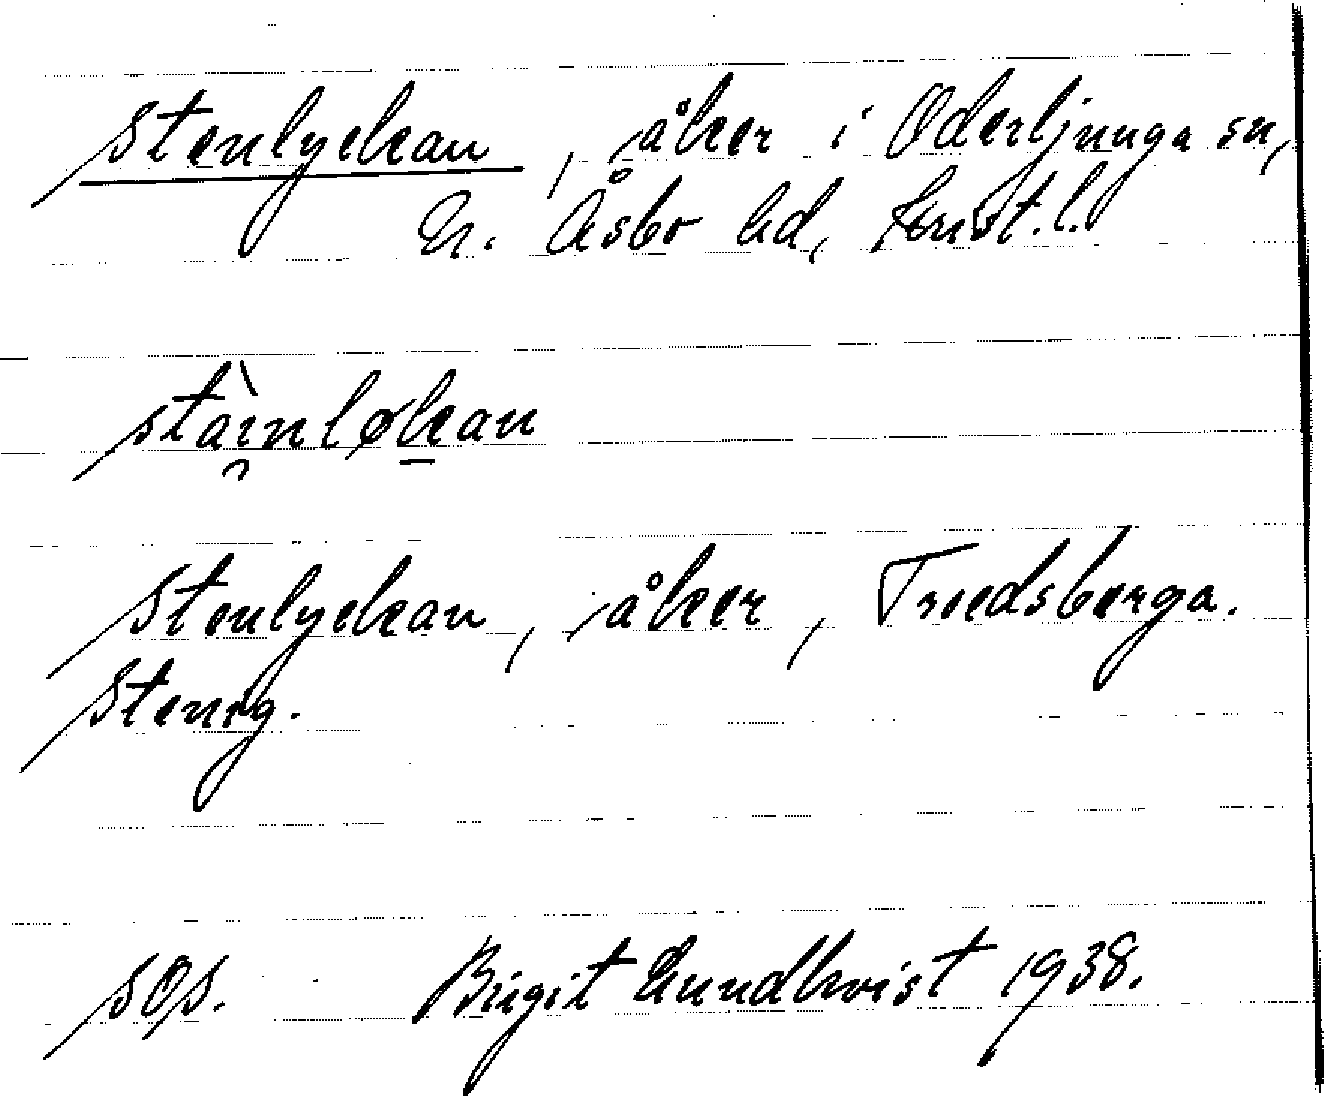 Stenlyckan, åker i Oderljunga sn,
N. Åsbo hd, Krist. l.
stàɪ̯nløkan
Stenlyckan, åker, Troedsberga.
Stenig.
SOS. Birgit Lundkvist 1938.